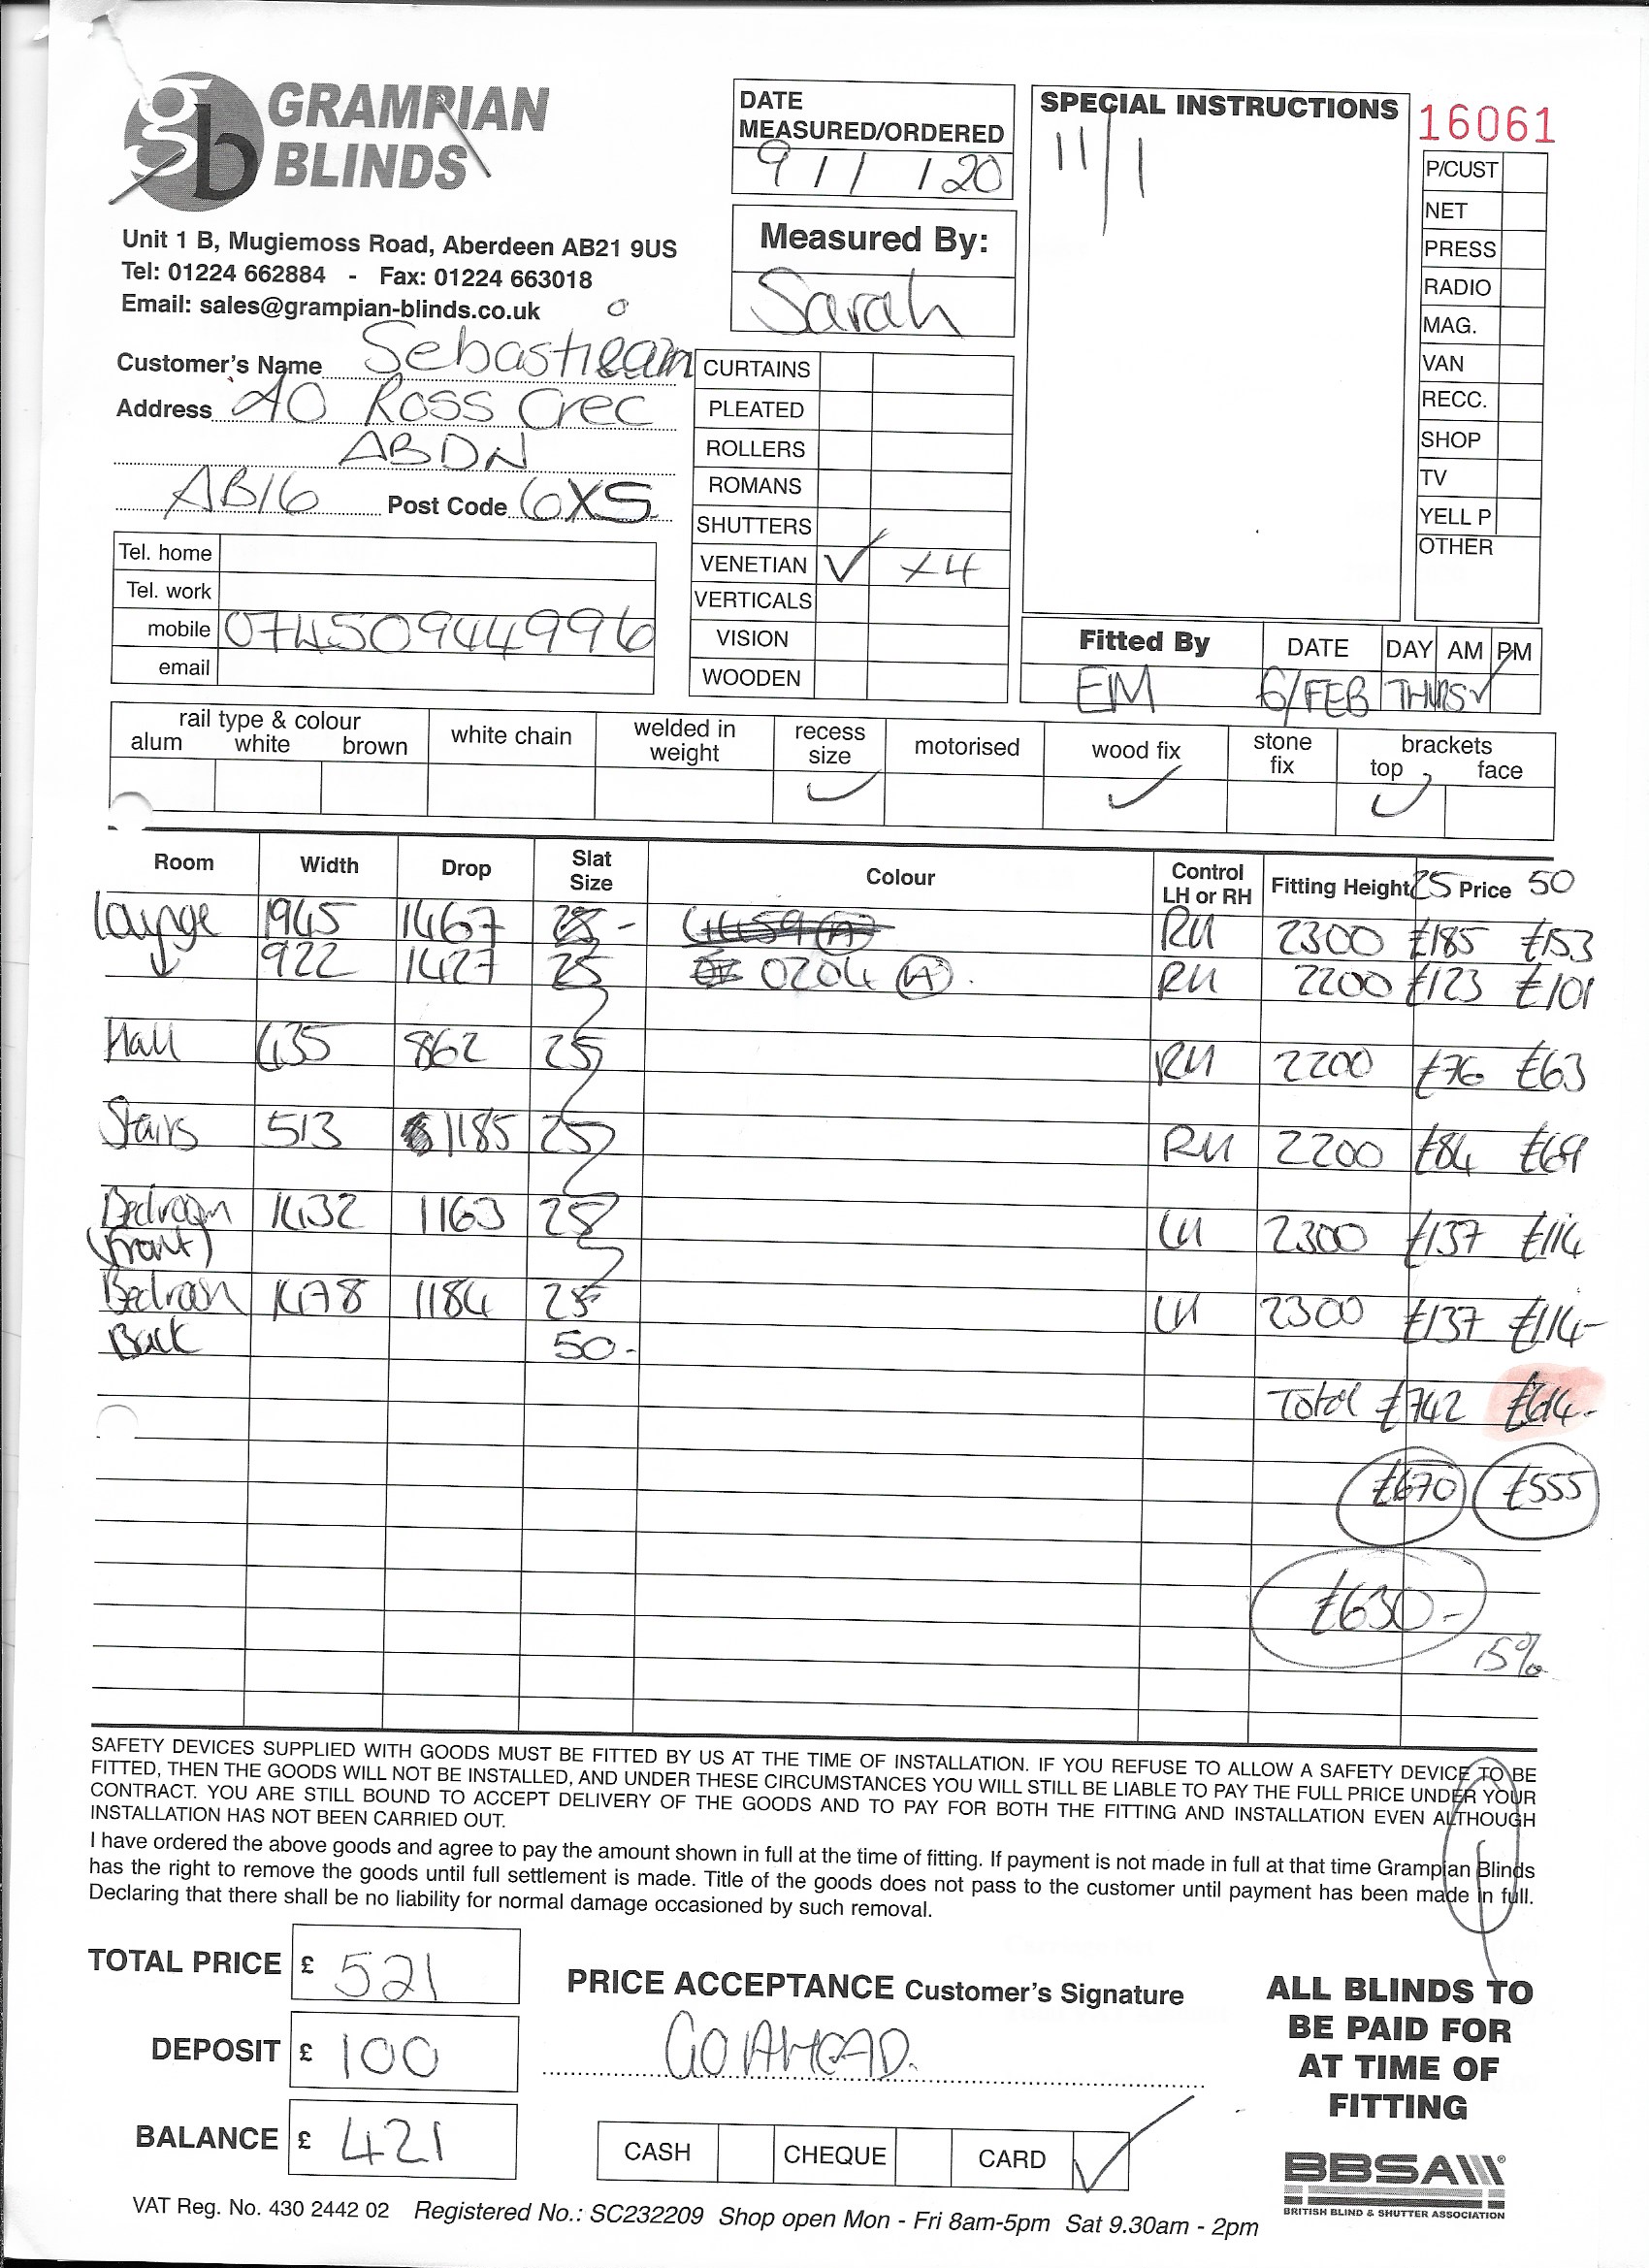 gb GRAMPIAN
BLINDS
Unit 1 B, Mugiemoss Road, Aberdeen AB21 9US
Tel: 01224 662884 - Fax: 01224 663018
Email: sales@grampian-blinds.co.uk
DATE
MEASURED/ORDERED
9 / 1 / 20
Measured By:
Sarah
SPECIAL INSTRUCTIONS
11/1
16061
P/CUST
NET
PRESS
RADIO
MAG.
VAN
RECC.
SHOP
TV
YELL P
OTHER
Customer's Name Sebastieam
Address 40 Ross Crec
ABDN
AB16 Post Code 6XS
Tel. home
Tel. work
mobile 07450944996
email
CURTAINS
PLEATED
ROLLERS
ROMANS
SHUTTERS
VENETIAN ✓ x4
VERTICALS
VISION
WOODEN
Fitted By DATE DAY AM PM
EM 6/FEB THURS ✓
rail type & colour
alum white brown
white chain
welded in
weight
recess
size ✓
motorised
wood fix ✓
stone
fix
brackets
top ✓ face
Room Width Drop Slat Size Colour Control LH or RH Fitting Height 25 Price 50
Lounge 1945 1467 25 - 4459 (A) RH 2300 £185 £153
↓ 922 1427 25 0204 (A) RH 2200 £123 £101
Hall 435 862 25 RH 2200 £76 £63
Stairs 513 1185 25 RH 2200 £84 £69
Bedroom 1432 1163 25 LH 2300 £137 £114
(Front)
Bedroom 1478 1184 25 LH 2300 £137 £114-
Back 50-
Total £742 £614-
£670 £555
£630-
15%
SAFETY DEVICES SUPPLIED WITH GOODS MUST BE FITTED BY US AT THE TIME OF INSTALLATION. IF YOU REFUSE TO ALLOW A SAFETY DEVICE TO BE
FITTED, THEN THE GOODS WILL NOT BE INSTALLED, AND UNDER THESE CIRCUMSTANCES YOU WILL STILL BE LIABLE TO PAY THE FULL PRICE UNDER YOUR
CONTRACT. YOU ARE STILL BOUND TO ACCEPT DELIVERY OF THE GOODS AND TO PAY FOR BOTH THE FITTING AND INSTALLATION EVEN ALTHOUGH
INSTALLATION HAS NOT BEEN CARRIED OUT.
I have ordered the above goods and agree to pay the amount shown in full at the time of fitting. If payment is not made in full at that time Grampian Blinds
has the right to remove the goods until full settlement is made. Title of the goods does not pass to the customer until payment has been made in full.
Declaring that there shall be no liability for normal damage occasioned by such removal.
TOTAL PRICE £ 521
DEPOSIT £ 100
BALANCE £ 421
PRICE ACCEPTANCE Customer's Signature
GO AHEAD.
CASH CHEQUE CARD ✓
ALL BLINDS TO
BE PAID FOR
AT TIME OF
FITTING
BBSA
BRITISH BLIND & SHUTTER ASSOCIATION
VAT Reg. No. 430 2442 02 Registered No.: SC232209 Shop open Mon - Fri 8am-5pm Sat 9.30am - 2pm